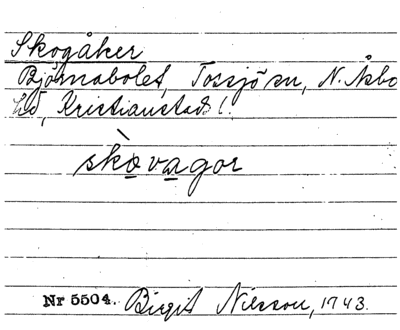 Skogåker
Björnabolet, Tossjö sn, N. Åsbo
hd, Kristianstads l.
skòvagor
Nr 5504. Birgit Nilsson, 1943.